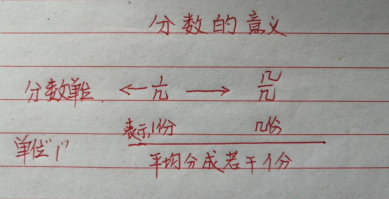 分数的意义
分数单位 ← 1/几 → 几/几
表示1份 几份
单位“1” 平均分成若干个份